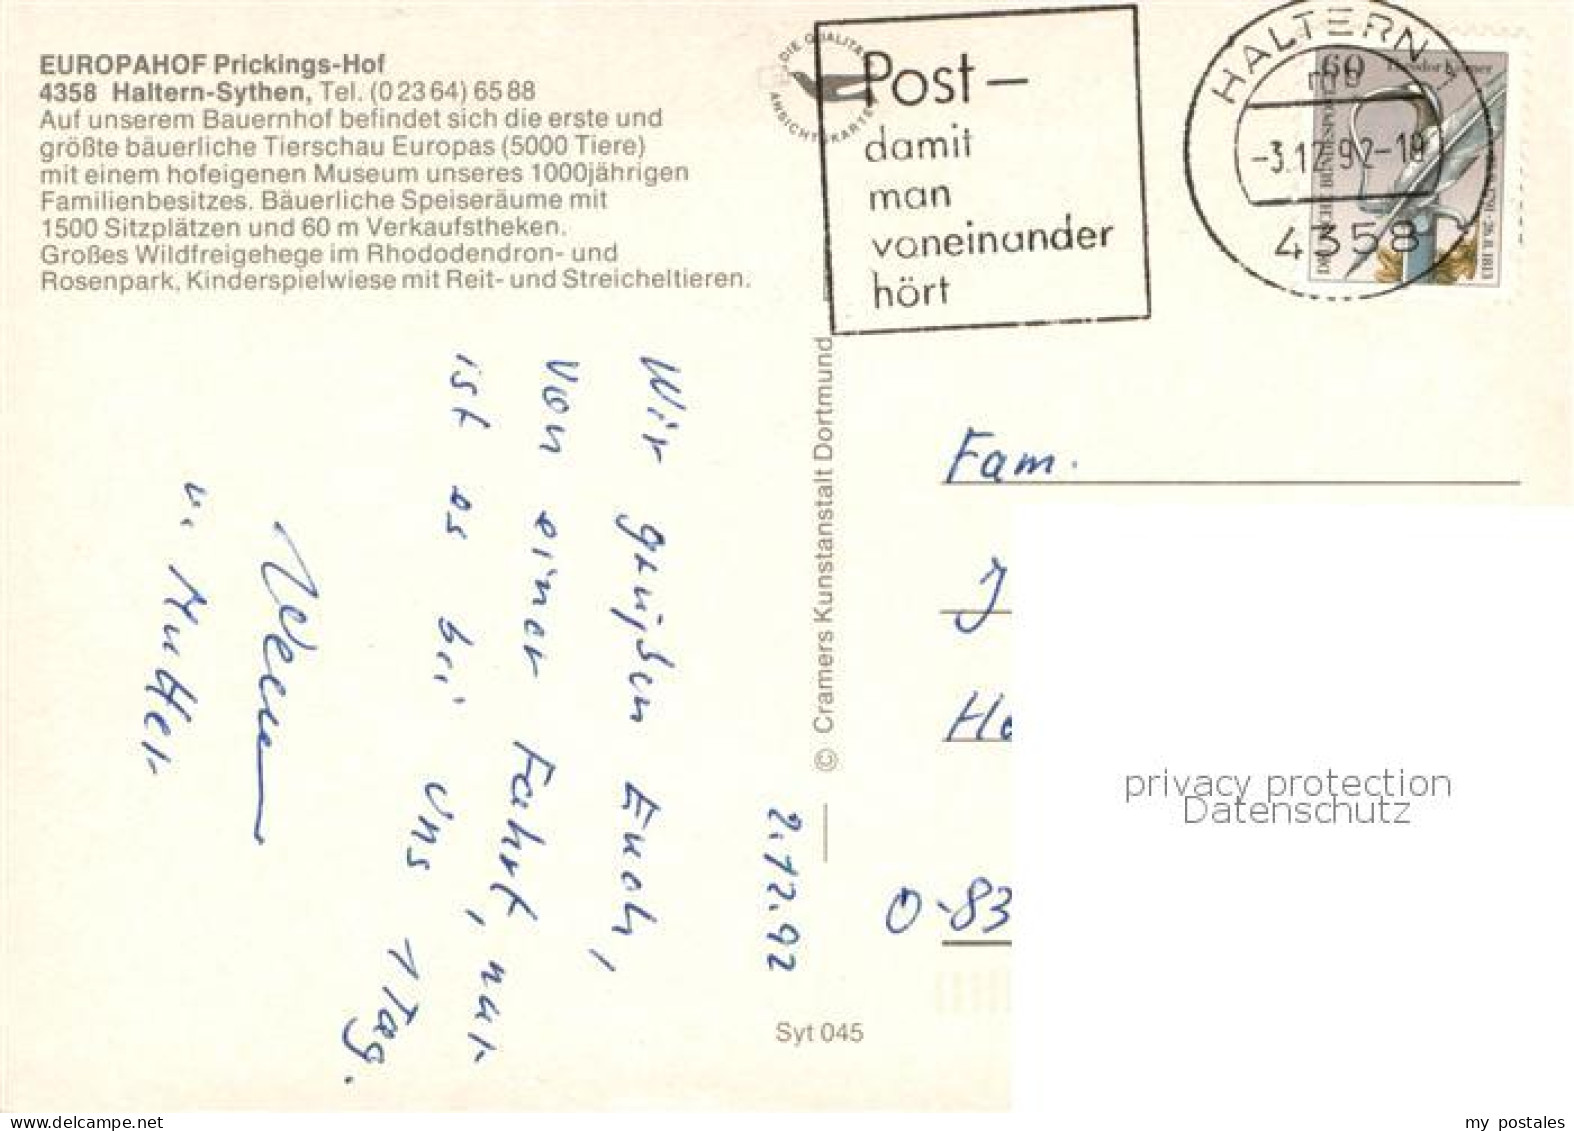 EUROPAHOF Prickings-Hof
4358 Haltern-Sythen, Tel. (0 23 64) 65 88
Auf unserem Bauernhof befindet sich die erste und
größte bäuerliche Tierschau Europas (5000 Tiere)
mit einem hofeigenen Museum unseres 1000jährigen
Familienbesitzes. Bäuerliche Speiseräume mit
1500 Sitzplätzen und 60 m Verkaufstheken.
Großes Wildfreigehege im Rhododendron- und
Rosenpark, Kinderspielwiese mit Reit- und Streicheltieren.
DIE QUALITÄTS
ANSICHTSKARTE
Post –
damit
man
voneinander
hört
HALTERN 1
mb
-3.12.92-18
4358
60
Theodor Körner
DEUTSCHE BUNDESPOST
1791 - 26.8.1813
2.12.92
Wir grüßen Euch,
von einer Fahrt, nur
ist es bei uns 1 Tag.
u. Mutter
© Cramers Kunstanstalt Dortmund
Syt 045
Fam.
J
Ha
O-83
privacy protection
Datenschutz
www.delcampe.net
my postales